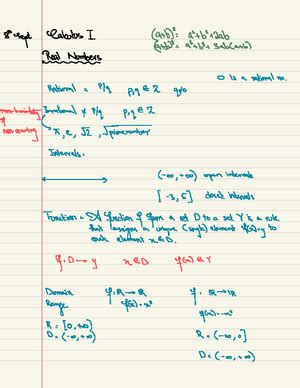 8th Sept
Calculus I.
(a+b)² = a²+b²+2ab
(a+b)³ = a³+b³+3ab(a+b)
Real Numbers
0 is a rational no.
Rational = P/q p,q ∈ Z q≠0
non-terminating
non recurring
Irrational ≠ P/q p,q ∈ Z
π, e, √2, √prime number
Intervals.
(-∞, ∞) open intervals
[-3, 5] closed intervals
Function = A function f from a set D to a set Y is a rule
that assigns a unique (single) element f(x)=y to
each element x ∈ D.
f: D → y x ∈ D f(x) ∈ Y
Domain f: R → R f: R → R
Range f(x) = x² f(x) = -x²
R = [0, +∞)
D = (-∞, +∞)
R = (-∞, 0]
D = (-∞, +∞)